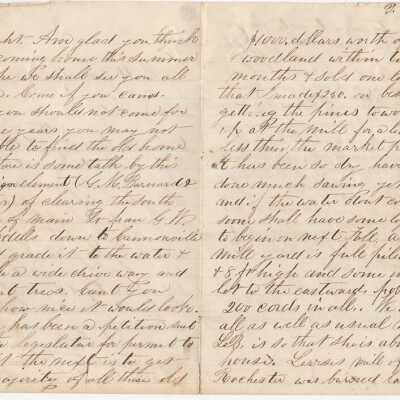 ht. Am glad you think
coming home this summer
we shall see you all
Come if you can
you should not come for
years you may not
able to find the old home
there is some talk by this
(G. M. Barnard &
) of clearing the south
of Main St from G. W.
down to
grade it to the water &
a wide drive way and
trees. Can't you
how nice it would look.
has been a petition
legislator for permit to
the next is to get
majority of all the
2
dollars worth o
woodland within t
months & sold one l
that I made $250. on bes
getting the pines to wo
up at the Mill for a l
less then the market p
It has been so dry, have
done much sawing ye
and if the water don't co
soon shall have some l
to begin on next fall, a
Mill yard is full pile
& 8 ft high and some in
lot to the eastward.
200 cords in all. We
all as well as usual
L.B. is so that she is abo
house. mill o
Rochester was burned la